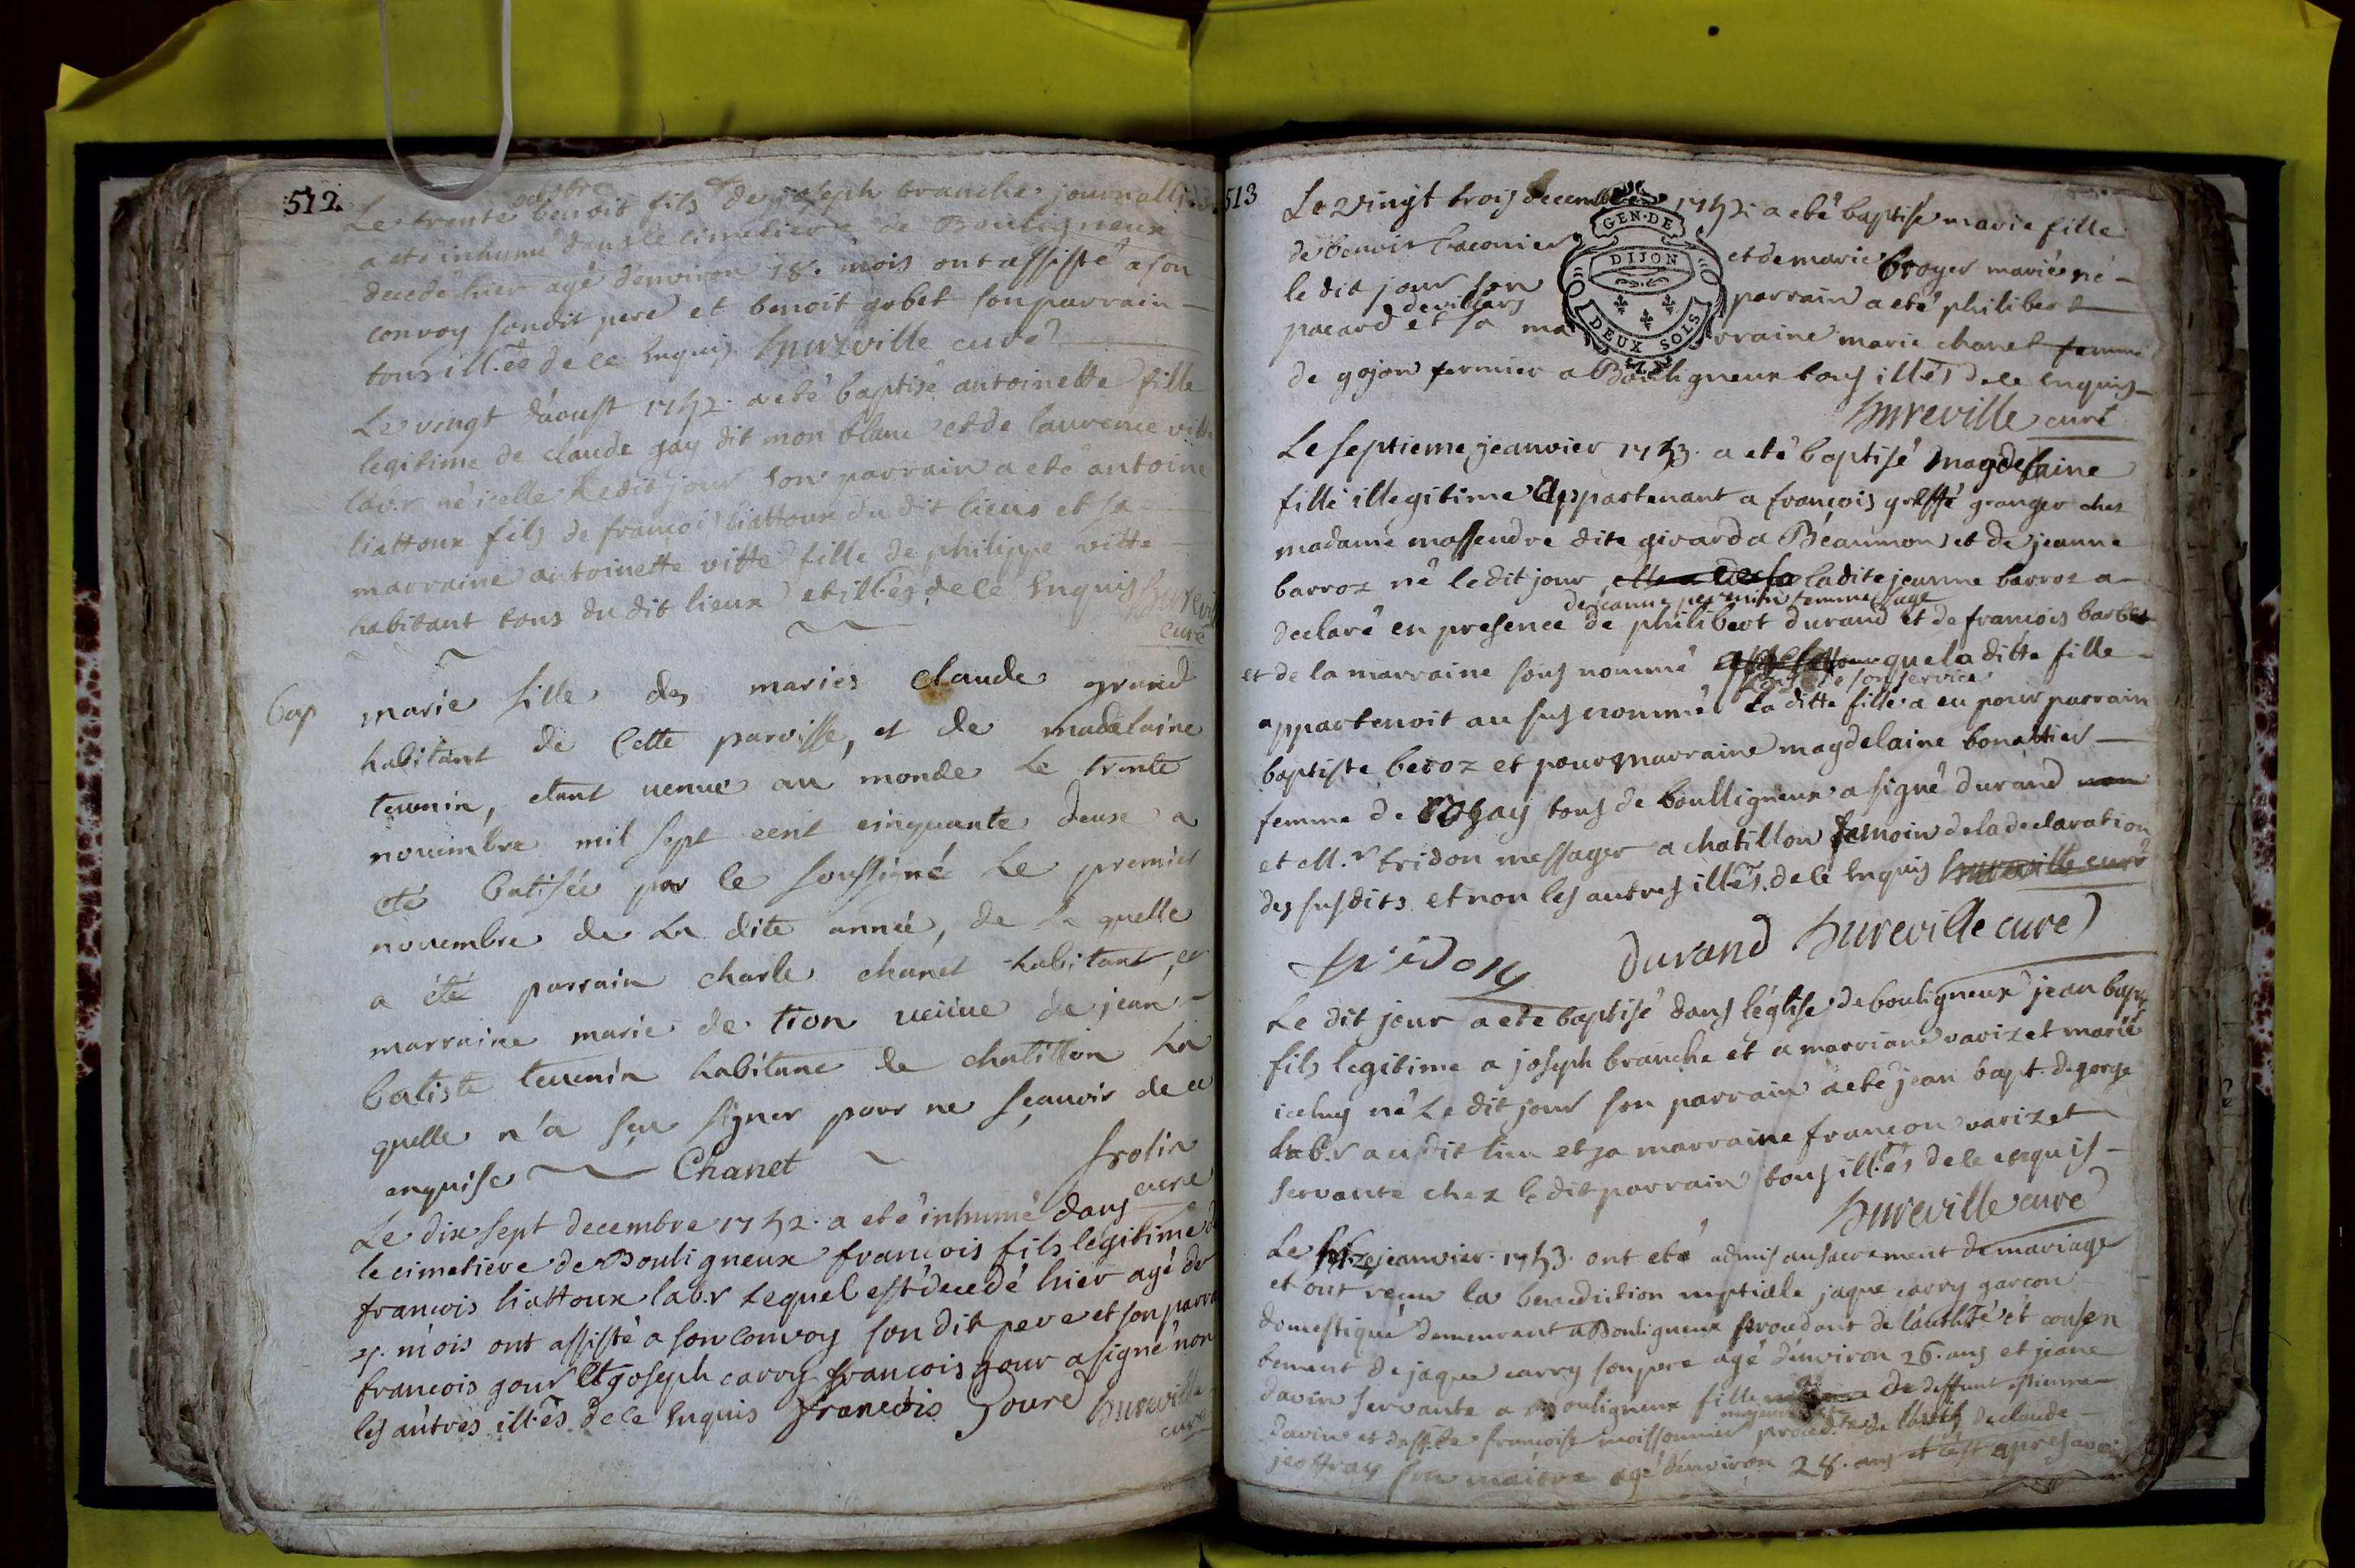 512
octobre
Le trente benoit fils de joseph branche journallier
a eté inhumé dans le cimetiere de Bouligneux
decedé hier agé denviron 18. mois ont assisté a son
convoy son dit pere et benoit gobet son parrain
tous ill.és de ce enquis hureville curé
Le vingt d'aoust 1752. a eté baptisé antoinette fille
legitime de claude gay dit mon blanc et de laurence vitte
lab.r né icelle ledit jour son parrain a eté antoine
liattoux fils de francois liattoux du dit lieux et sa
marraine antoinette vitte fille de philippe vitte
habitant tous du dit lieux et ill.és de ce enquis hurevil
curé
Bap
marie fille des maries claude grand
habitant de Cette paroisse, et de madelaine
teuenin, etant uenue au monde Le trente
nouembre mil sept cent cinquante deuse a
eté batisée par le soussigné Le premier
nouembre de La dite année, de La quelle
a été parrain charle chanet habitant, et
marraine marie de tion ueüue de jean
batiste teuenin habitane de chatillon La
quelle n'a sçu signer pour ne sçauoir de ce
enquise Chanet frolin
curé
Le dix sept decembre 1752. a eté inhumé dans
le cimetiere de Bouligneux francois fils légitime de
francois liattoux lab.r Lequel est décedé hier agé de
mois ont assisté a son convoy son dit pere et son parra
francois gour et joseph carry francois gour a signé non
les autres ill.és de ce enquis francois Goure hureville
curé
513
Le vingt trois decembre 1752. a eté baptisé marie fille
GEN. DE DIJON
DEUX SOLS
de benoit laconier et de marie broyer mariés né
le dit jour son parrain a eté philibert
de villars
pacard et sa marraine marie chanel femme
de gojon fermier a Bouligneux tous illés de ce enquis
hureville curé
Le septieme jeanvier 1753. a eté baptisé magdelaine
fille illegitime appartenant a francois greffé granger ches
madame massendre dite girard a Béaumon et de jeanne
barroz né le dit jour ladite jeanne barroz a
de jeanne perenin femme sage
declaré en presence de philibert durand et de francois barbet
et de la marraine sous nommé que la ditte fille
son service
appartenoit au sus nommé La ditte fille a eu pour parrain
baptiste beroz et pour marraine magdelaine bonattier
femme de rogay tous de boulligneux a signé durand non
et M.r tridon messager a chatillon temoin de la declaration
des susdits et non les autres illés. de ce enquis hureville curé
tridon Durand hureville curé
Le dit jour a eté baptisé dans léglise de bouligneux jean bapt
fils legitime a joseph branche et a marriane varizet marié
iceluy né Le dit jour son parrain a eté jean bapt. degorge
lab.r au dit lieu et sa marraine francon varizet
servante chez le dit parrain tous ill.és de ce enquis
hureville curé
Le seize jeanvier. 1753. ont eté admis au sacrement de mariage
et ont reçeu la benediction nuptialle jaque carry garcon
domestique demeurant a Bouligneux procedant de l'autt.té et consen
tement de jaque carry son pere agé d'environ 26. ans et jeane
davin servante a Bouligneux fille de deffunt estienne
davin et deff.te francoise moissonnier procéd.te de de claude
jeoffray son maitre agé d'environ 28. ans et c'est apres avoir